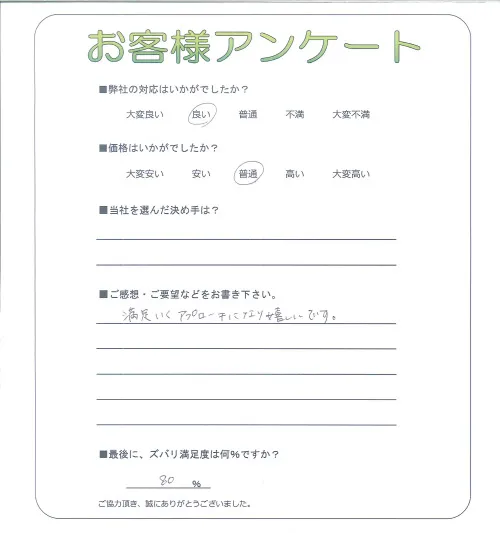 お客様アンケート
■弊社の対応はいかがでしたか？
大変良い 良い 普通 不満 大変不満
■価格はいかがでしたか？
大変安い 安い 普通 高い 大変高い
■当社を選んだ決め手は？
■ご感想・ご要望などをお書き下さい。
満足いくアプローチになり嬉しいです。
■最後に、ズバリ満足度は何％ですか？
80 ％
ご協力頂き、誠にありがとうございました。